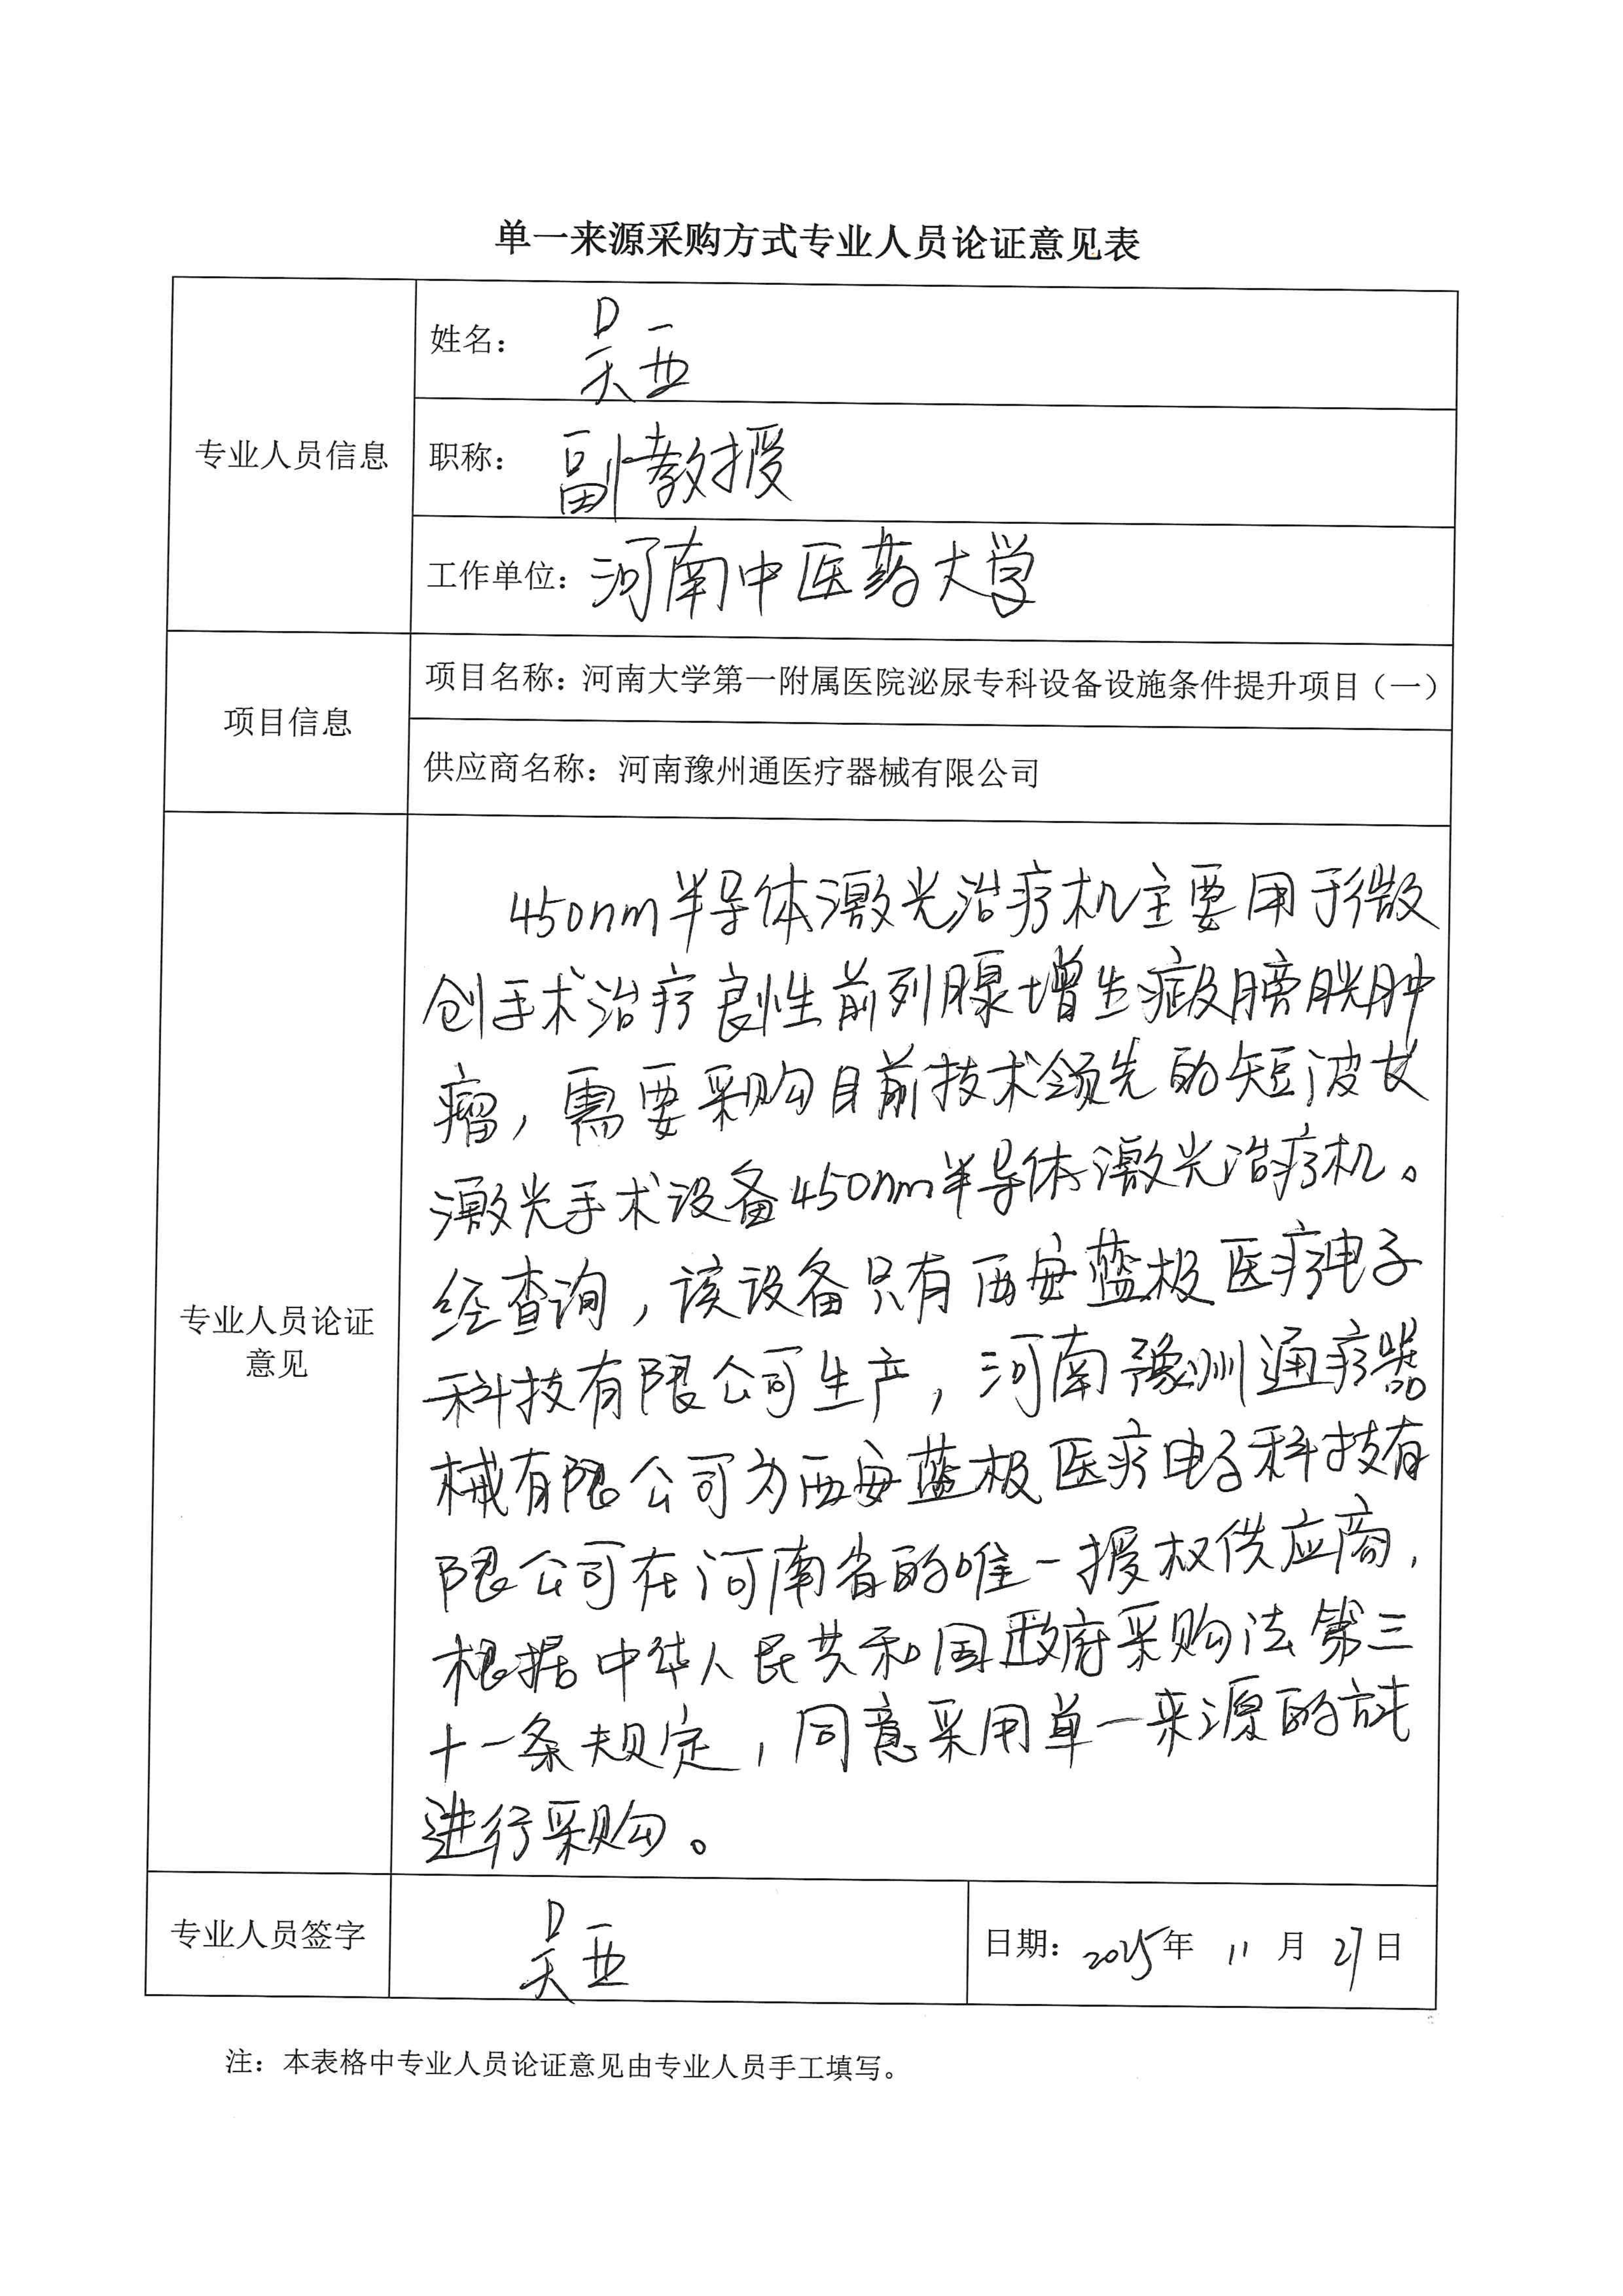 单一来源采购方式专业人员论证意见表
专业人员信息
姓名：吴亚
职称：副教授
工作单位：河南中医药大学
项目信息
项目名称：河南大学第一附属医院泌尿专科设备设施条件提升项目（一）
供应商名称：河南豫州通医疗器械有限公司
专业人员论证
意见
450nm半导体激光治疗机主要用于微
创手术治疗良性前列腺增生症及膀胱肿
瘤，需要采购目前技术领先的短波长
激光手术设备450nm半导体激光治疗机。
经查询，该设备只有西安蓝极医疗电子
科技有限公司生产，河南豫州通疗器
械有限公司为西安蓝极医疗电子科技有
限公司在河南省的唯一授权供应商，
根据中华人民共和国政府采购法第三
十一条规定，同意采用单一来源的方式
进行采购。
专业人员签字
吴亚
日期：2025年 11 月 27 日
注：本表格中专业人员论证意见由专业人员手工填写。